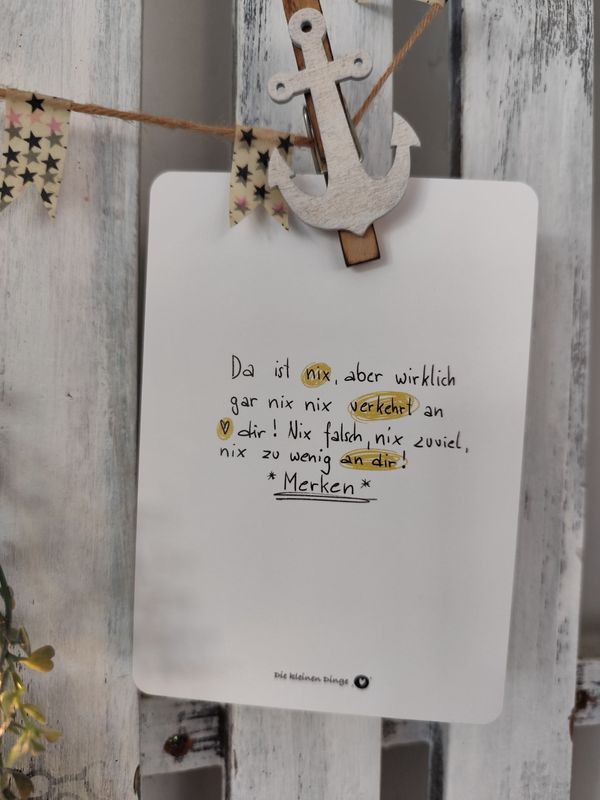 Da ist nix, aber wirklich
gar nix nix verkehrt an
♡ dir! Nix falsch, nix zuviel,
nix zu wenig an dir!
*Merken*
Die kleinen Dinge